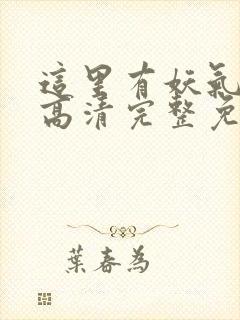 這里有妖氣
高清完整免
葉春為